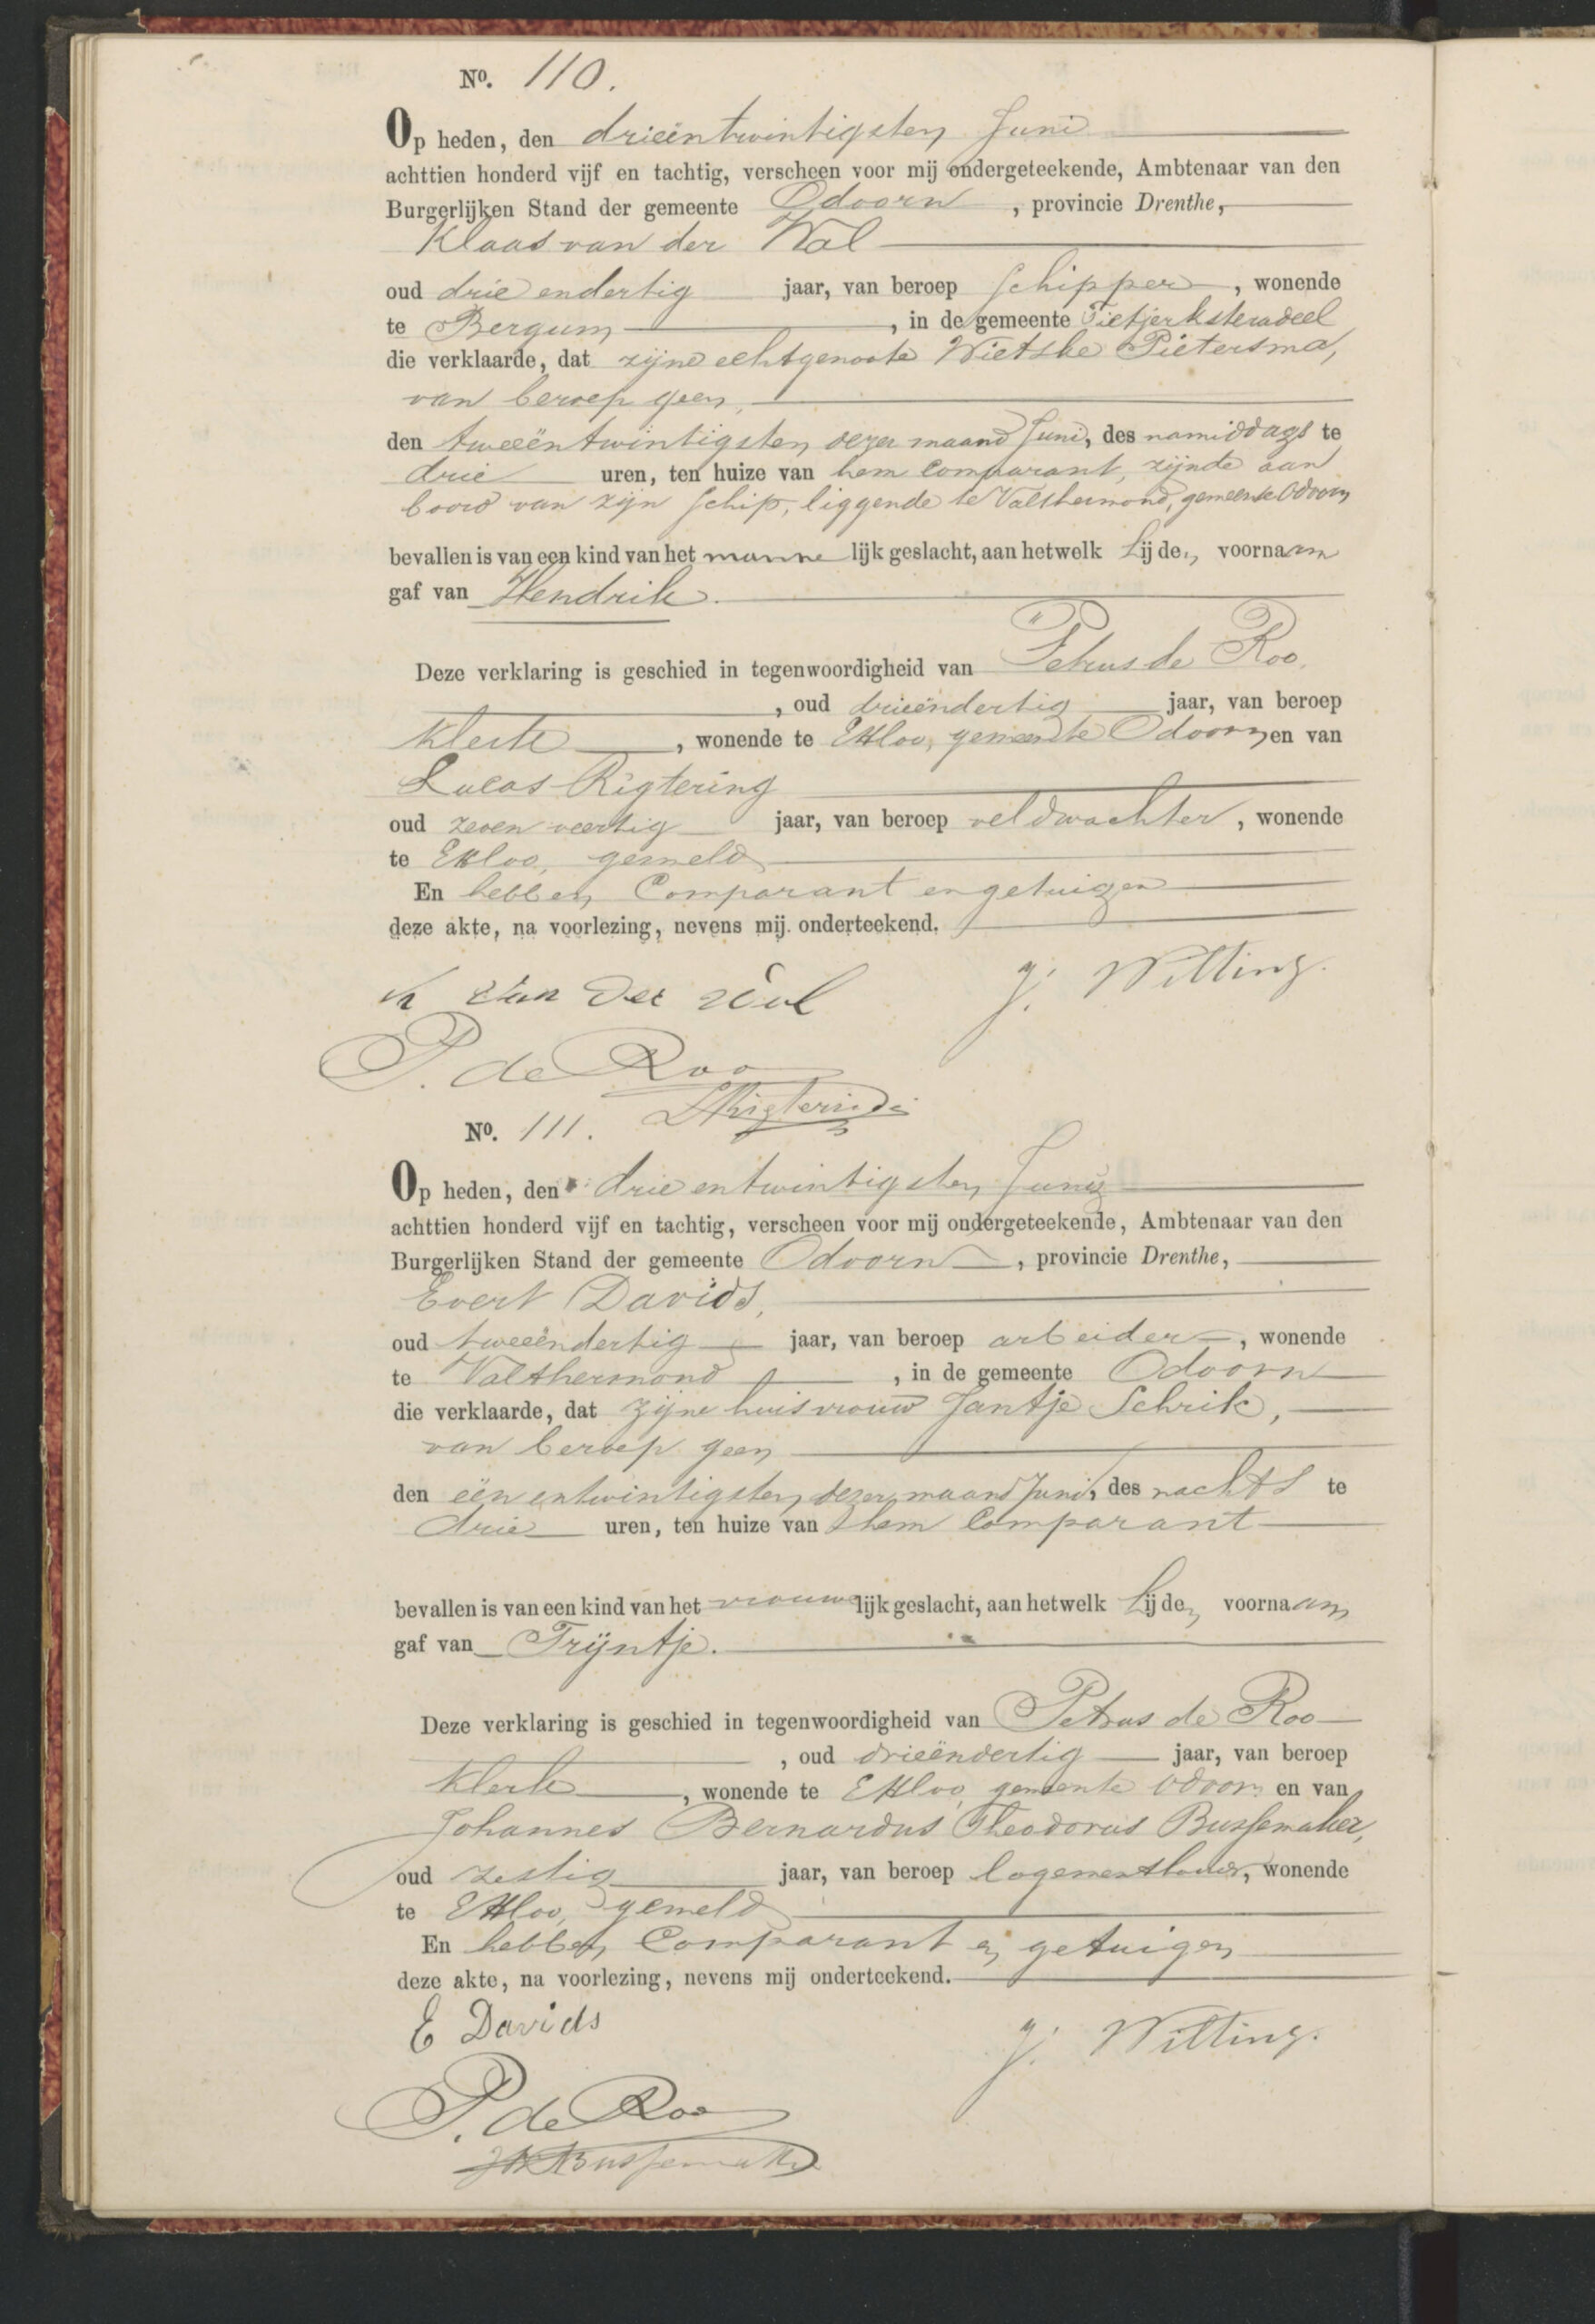 No. 110.
Op heden, den drieëntwintigsten Juni
achttien honderd vijf en tachtig, verscheen voor mij ondergeteekende, Ambtenaar van den
Burgerlijken Stand der gemeente Odoorn, provincie Drenthe,
Klaas van der Wal
oud drie endertig jaar, van beroep Schipper, wonende
te Bergum, in de gemeente Tietjerksteradeel
die verklaarde, dat zijne echtgenoote Wietske Pietersma,
van beroep geen,
den tweeëntwintigsten dezer maand Juni, des namiddags te
drie uren, ten huize van hem Comparant, zijnde aan
boord van zijn schip, liggende te Valthermond, gemeente Odoorn
bevallen is van een kind van het mannelijk geslacht, aan hetwelk hij den voornaam
gaf van Hendrik.
Deze verklaring is geschied in tegenwoordigheid van Petrus de Roo,
, oud drieëndertig jaar, van beroep
Klerk, wonende te Exloo, gemeente Odoorn en van
Lucas Rigtering
oud zeven veertig jaar, van beroep veldwachter, wonende
te Exloo, gemeld
En hebben Comparant en getuigen
deze akte, na voorlezing, nevens mij onderteekend.
K van der Wal
J. Wilting.
P. de Roo
LRigtering
No. 111.
Op heden, den drie entwintigsten Junij
achttien honderd vijf en tachtig, verscheen voor mij ondergeteekende, Ambtenaar van den
Burgerlijken Stand der gemeente Odoorn, provincie Drenthe,
Evert Davids,
oud tweeëndertig jaar, van beroep arbeider, wonende
te Valthermond, in de gemeente Odoorn
die verklaarde, dat zijne huisvrouw Jantje Schrik,
van beroep geen
den eenentwintigsten dezer maand Juni, des nachts te
drie uren, ten huize van hem Comparant
bevallen is van een kind van het vrouwelijk geslacht, aan hetwelk hij den voornaam
gaf van Trijntje.
Deze verklaring is geschied in tegenwoordigheid van Petrus de Roo
, oud drieëndertig jaar, van beroep
Klerk, wonende te Exloo, gemeente Odoorn en van
Johannes Bernardus Theodorus Bussemaker,
oud zestig jaar, van beroep logementhouder, wonende
te Exloo, gemeld
En hebben Comparant en getuigen
deze akte, na voorlezing, nevens mij onderteekend.
E Davids
J. Wilting.
P. de Roo
Bussemaker